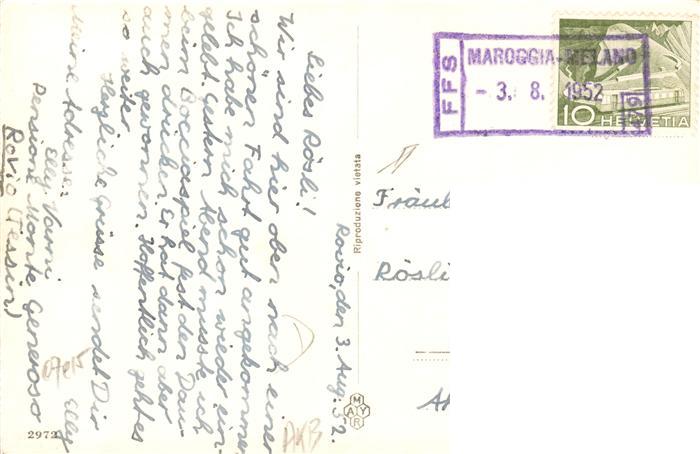 Rovio, den 3. Aug. 52.
Liebes Rösli!
Wir sind hier oben nach einer
schönen Fahrt gut angekommen.
Ich habe mich schon wieder ein-
gelebt. Gutem Abend musste ich
beim Bocciaspiel fest den Dau-
men drücken. Er hat dann aber
auch gewonnen. Hoffentlich geht es
so weiter.
Herzliche Grüsse sendet Dir
Elly
Meine Adresse:
Elly Varni
Pensione Monte Generoso
Rovio (Tessin)
2972
AKB
Riproduzione vietata
MAYR
FFS
MAROGGIA-MELANO
- 3. 8. 1952
10 HELVETIA
Fräul
Rösli